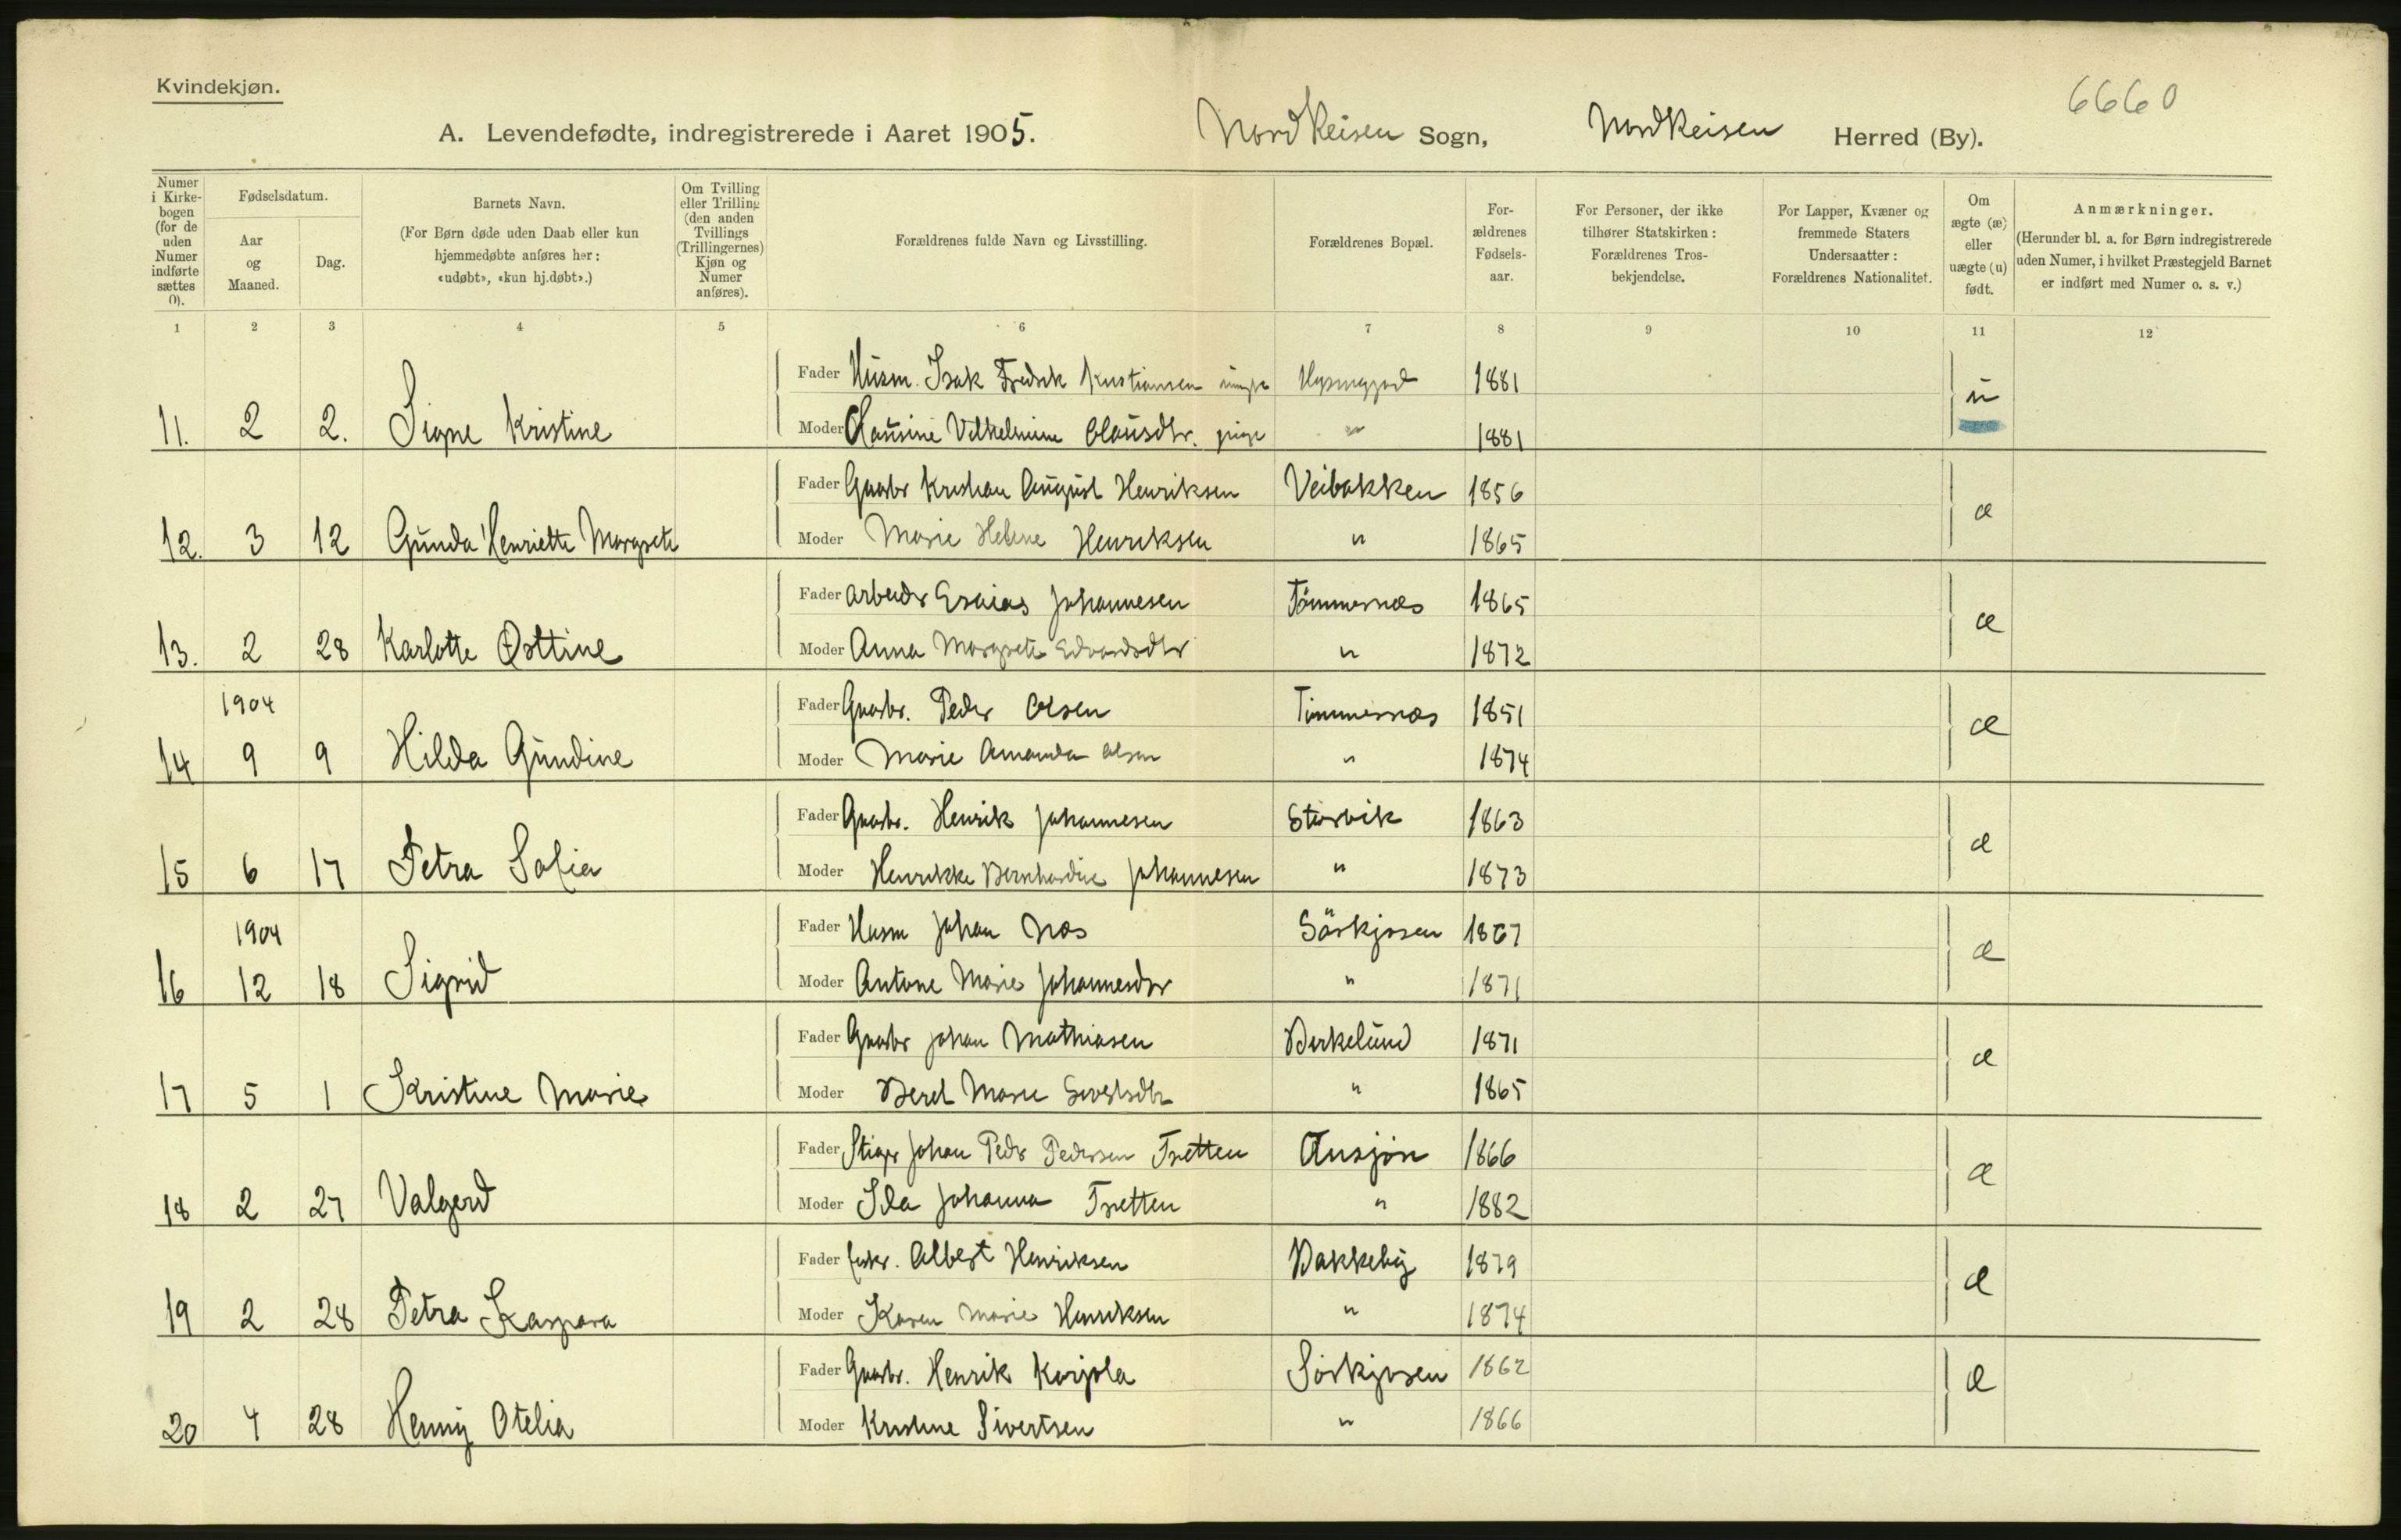 Kvindekjøn.
6660
A. Levendefødte, indregistrerede i Aaret 1905. Nordreisen Sogn, Nordreisen Herred (By).
Numer i Kirkebogen (for de uden Numer indførte sættes 0).
Fødselsdatum.
Aar og Maaned.
Dag.
Barnets Navn.
(For Børn døde uden Daab eller kun hjemmedøbte anføres her: «udøbt», «kun hj.døbt».)
Om Tvilling eller Trilling (den anden Tvillings (Trillingernes) Kjøn og Numer anføres).
Forældrenes fulde Navn og Livsstilling.
Forældrenes Bopæl.
Forældrenes Fødselsaar.
For Personer, der ikke tilhører Statskirken: Forældrenes Trosbekjendelse.
For Lapper, Kvæner og fremmede Staters Undersaatter: Forældrenes Nationalitet.
Om ægte (æ) eller uægte (u) født.
Anmærkninger.
(Herunder bl. a. for Børn indregistrerede uden Numer, i hvilket Præstegjeld Barnet er indført med Numer o. s. v.)
1 2 3 4 5 6 7 8 9 10 11 12
Fader Husm. Isak Fredrik Kristiansen 1881 u
11. 2 2. Signe Kristine Moder Hansine Vilhelmine Olausdtr. pige " 1881
Fader Gaarbr Kristian August Henriksen Veibakken 1856 æ
12. 3 12 Gunda Henriette Margrete Moder Marie Helene Henriksen " 1865
Fader Arbeider Esaias Johannesen Tömmernæs 1865 æ
13. 2 28 Karlotte Østtine Moder Anna Margrete Edvardsdtr " 1872
1904 Fader Gaarbr. Peder Olsen Tömmernæs 1851 æ
14 9 9 Hilda Gundine Moder Marie Amanda Olsen " 1874
Fader Gaarbr. Henrik Johannesen Storvik 1863 æ
15 6 17 Petra Sofia Moder Henrikke Bernhardine Johannesen " 1873
1904 Fader Husm Johan Næs Sörkjosen 1867 æ
16 12 18 Sigrid Moder Antone Marie Johannesdtr " 1871
Fader Gaarbr Johan Mathiasen Birkelund 1871 æ
17 5 1 Kristine Marie Moder Beret Marie Sivertsdtr " 1865
Fader Stiger Johan Peder Pedersen Tretten 1866 æ
18 2 27 Valgerd Moder Ida Johanna Tretten " 1882
Fader fisker. Albert Henriksen Bakkeby 1879 æ
19 2 28 Petra Kaspara Moder Karen Marie Henriksen " 1874
Fader Gaarbr. Henrik Korjola Sörkjosen 1862 æ
20 4 28 Henny Otelia Moder Kristine Sivertsen " 1866